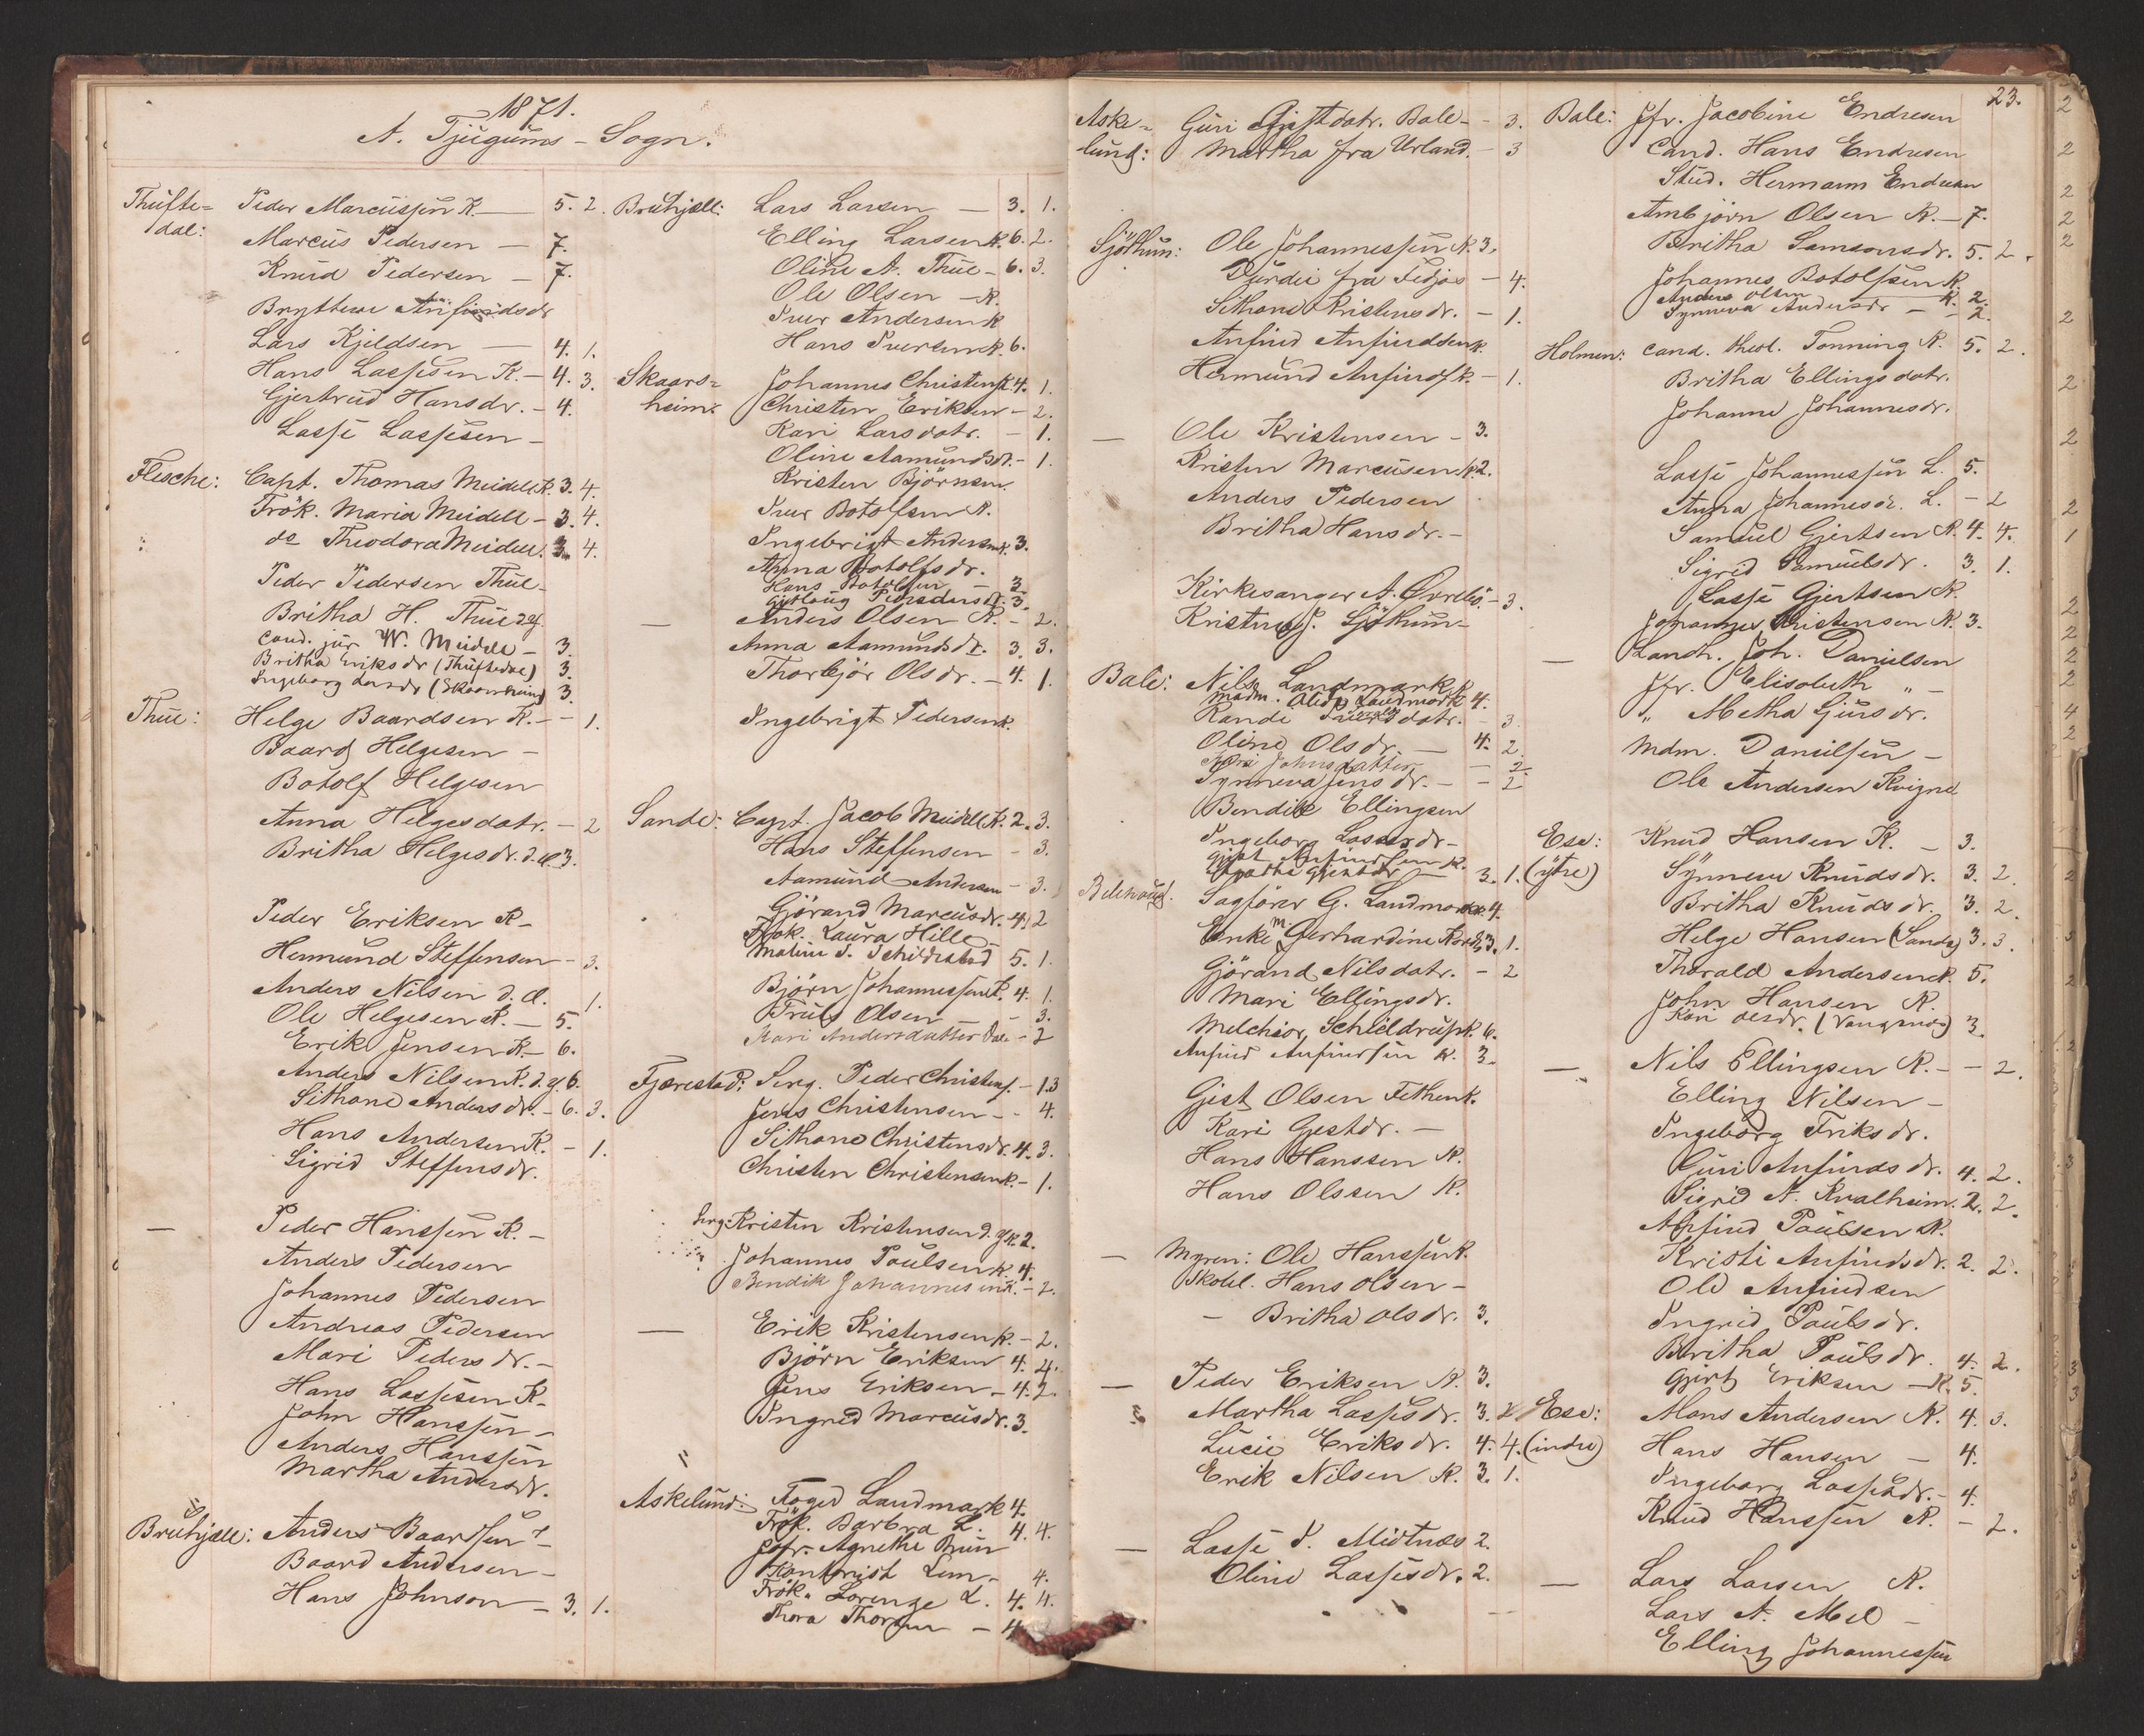 1871.
A. Tjugums-Sogn.
Thufte= Peder Marcussen K. — 5. 2.
dal: Marcus Pedersen — 7.
Knud Pedersen — 7.
Brytteve Anfindsdr
Lars Kjeldsen — 4. 1.
Hans Lassesen K. — 4. 3.
Gjertrud Hansdr. - 4.
Lasse Lassesen -
Flesche: Capt. Thomas Meidell K. 3. 4.
Frök. Maria Meidell - 3. 4.
do Theodora Meidell. 3. 4.
Peder Pedersen Thue -
Britha H. Thue
Cand. jur W. Meidell - 3.
Britha Eriksdr (Thuftedal) 3.
Ingeborg Larsdr (Skaarsheim) 3
Thue: Helge Baardsen K. - - 1.
Baard Helgesen -
Botolf Helgesen
Anna Helgesdatr. - 2
Britha Helgesdr. d. æ. 3.
Peder Eriksen K -
Hermund Steffensen - 3.
Anders Nilsen d. æ. 1.
Ole Helgesen K. — 5.
Erik Jensen K. — 6.
Anders Nilsen K. d. y. 6.
Sithane Andersdr. - 6. 3.
Hans Andersen K. - 1.
Sigrid Steffensdr.
— Peder Hanssen K. -
Anders Pedersen
Johannes Pedersen
Andreas Pedersen
Mari Pedersdr. -
Hans Lassesen K -
John Hanssen -
Anders Hanssen
Martha Andersdr.
Bruhjell: Anders Baardsen -
Baard Andersen -
Hans Johnson - 3. 1.
Bruhjell: Lars Larsen — 3. 1.
Elling Larsen K. 6. 2.
Oline A. Thue - 6. 3.
Ole Olsen - K.
Iver Andersen K
Hans Iversen K. 6.
Skaars= Johannes Christens. K. 4. 1.
heim: Christen Eriksen - 2.
Kari Larsdatr. - 1.
Oline Aamundsdr. - 1.
Kristen Björnsen.
Iver Botolfsen K.
Ingebrigt Andersen K. 3.
Anna Botolfsdr.
Hans Botolfsen - 3
Pedersdr 3.
— Anders Olsen K. - 2.
Anna Aamundsdr. 3. 3.
Thorbjör Olsdr. - 4. 1.
Ingebrigt Pedersen K.
Sande: Capt. Jacob Meidell K. 2. 3.
Hans Steffensen - 3.
Aamund Andersen - 3.
Gjörand Marcusdr. 4. 2
Frök. Laura Hille -
Maline S. Schildrabod 5. 1.
Björn Johannessen K. 4. 1.
Truls Olsen - 3.
Kari Andersdatter Dale - 2
Fjærestad: Serg. Peder Christens. - 1. 3
Jens Christensen - - 4.
Sithane Christensdr. 4. 3.
Christen Christensen K. - 1.
Serg. Kristen Kristensen d. y. K. 2.
Johannes Poulsen K. 4.
Bendik Johannesen K. - 2.
— Erik Kristensen K. - 2.
Björn Eriksen 4. 4.
Jens Eriksen - 4. 2.
Ingred Marcusdr. 3.
Askelund: Foged Landmark 4.
Frök. Barbra L. 4. 4.
Jofr. Agnethe Brun
Kontorist Lem - 4.
Frök. Lorenze L. 4. 4.
Thora Thorsen - 4
Aske= Guri Gjestdatr. Bale - - 3.
lund: Martha fra Urland. - 3
Sjöthun: Ole Johannessen K. 3.
Durdei fra Fedjos - 4.
Sithane Kristensdr. - 1.
Anfind Anfindsen K.
Hermund Anfinds. K. - 1.
— Ole Kristensen - 3.
Kristen Marcusen K. 2.
Anders Pedersen
Britha Hansdr. -
Kirkesanger A. - 3.
Kristen J. Sjöthun -
Bale: Nils Landmark K
Madm. Landmark 4.
Randi datr. - 3.
Oline Olsdr. — 4. 2
Johnsdatter - 2
Synneva Jensdr. - - 2
Bendik Ellingsen
Ingeborg Lassesdr -
Gjest Anfindsen K.
Gjestdr - 3. 1.
Belehaug. Sagförer G. Landmark K. 4.
Enkem. Gerhardine 3. 1.
Gjörand Nilsdatr. - 2
Mari Ellingsdr.
Melchior Schieldrup K. 6.
Anfind Anfindsen K. 3.
Gjest Olsen Fethen K.
Kari Gjestdr. -
Hans Hanssen K.
Hans Olssen K.
— Myren: Ole Hanssen K.
Skolel. Hans Olsen -
- Britha Olsdr. 3.
— Peder Eriksen K. 3.
Martha Lassesdr. 3. 2
Lucie Eriksdr. 4. 4.
Erik Nilsen K. 3. 1.
— Lasse P. Midtnæs 2.
Oline Lassesdr. 2.
23.
Bale: Jfr. Jacobine Endresen
Cand. Hans Endresen
Stud. Hermann Endresen
Ambjörn Olsen K. - 7.
Britha Samsonsdr. 5. 2.
Johannes Botolfsen K.
Anders Olsen — K. 2.
Synneva Andersdr - - 2.
Holmen: Cand. theol. Tonning K. 5. 2.
Britha Ellingsdatr.
Johanne Johannesdr.
Lasse Johannessen L. 5.
Anna Johannesdr. L. - 2
Samuel Gjertsen K. 4. 4.
Sigrid Samuelsdr. 3. 1.
Lasse Gjertsen K.
Johannes Kristensen K. 3.
— Landh. Joh. Danielsen
Jfr. Elisabeth " -
" Metha Gjersdr.
Mdm. Danielsen -
Ole Andersen Kvigne
Ese: Knud Hansen K. - 3.
(ytre) Synneve Knudsdr. 3. 2.
Britha Knudsdr. 3. 2.
Helge Hansen (Sande) 3. 3.
Thorald Andersen K. 5.
John Hansen K.
Kari Olsdr. (Vangsnæs) 3.
— Nils Ellingsen K. - - 2.
Elling Nilsen -
Ingeborg Eriksdr.
Guri Anfindsdr. 4. 2.
Sigrid N. Kvalheim. 2. 2.
Anfind Poulsen K.
Kristi Anfindsdr. 2. 2.
Ole Anfindsen
Ingrid Poulsdr.
Britha Poulsdr. 4. 2.
Gjert Eriksen - K. 5.
Ese: Mons Andersen K. 4. 3.
(indre) Hans Hansen - 4.
Ingeborg Lassesdr. - 4.
Knud Hanssen K. - 2.
— Lars Larsen K.
Lars A. Mel -
Elling Johannessen